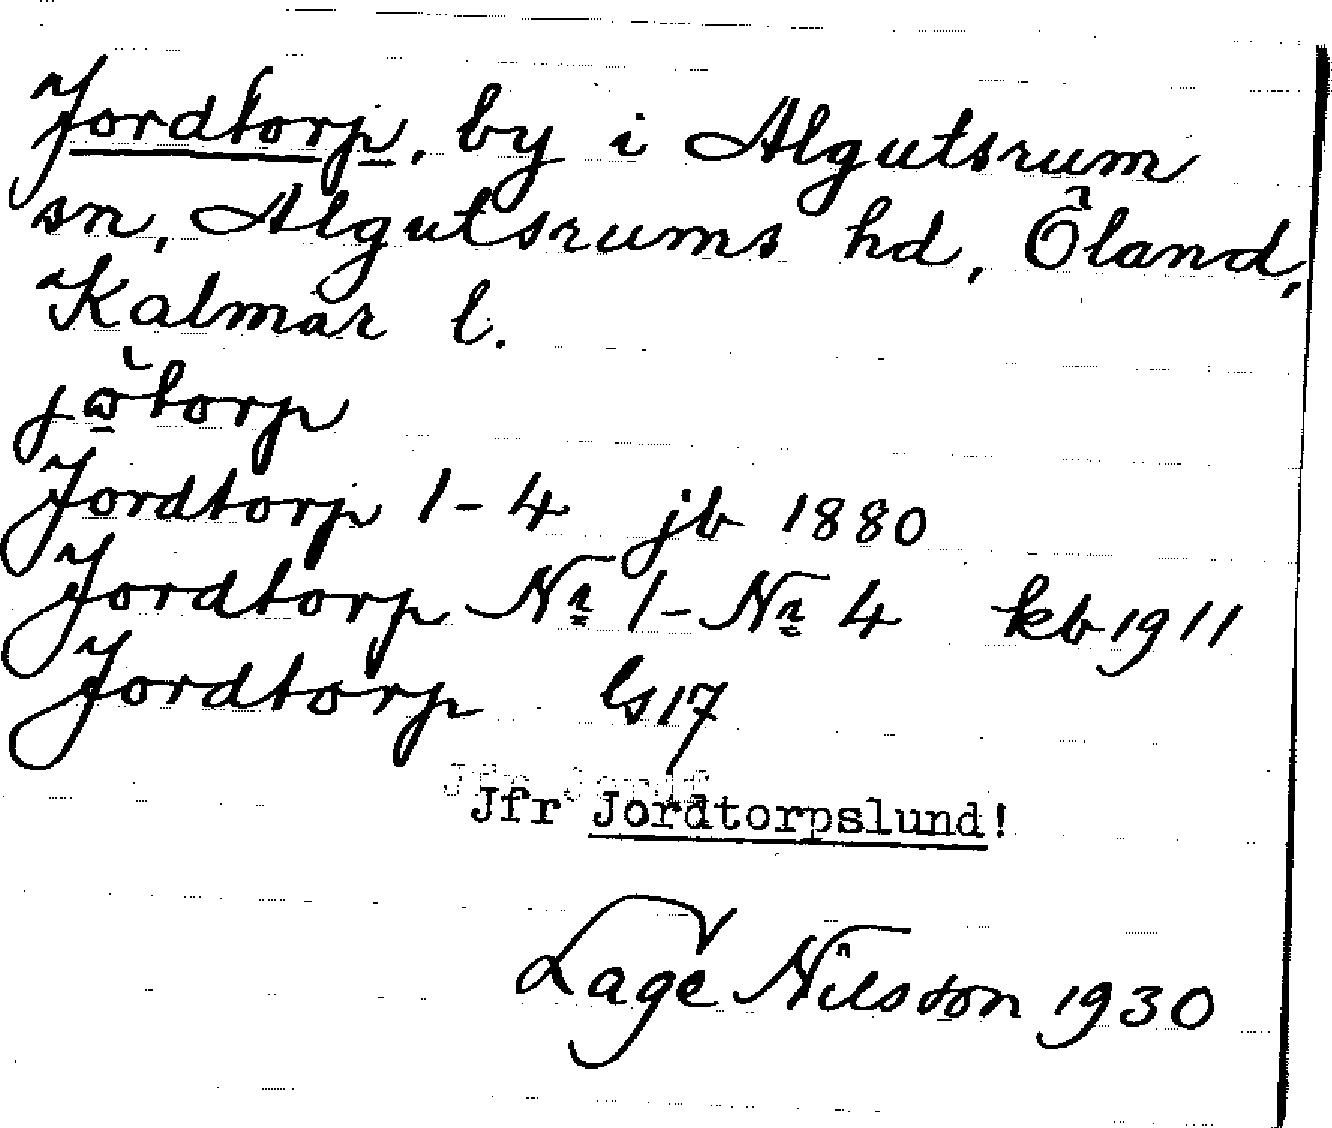 Jordtorp, by i Algutsrum
sn, Algutsrums hd, Öland,
Kalmar l.
Jordtorp 1-4 jb 1880
Jordtorp Nr 1- Nr 4 kb 1911
Jordtorp ls 17
Jfr Jordtorpslund!
Lage Nilsson 1930